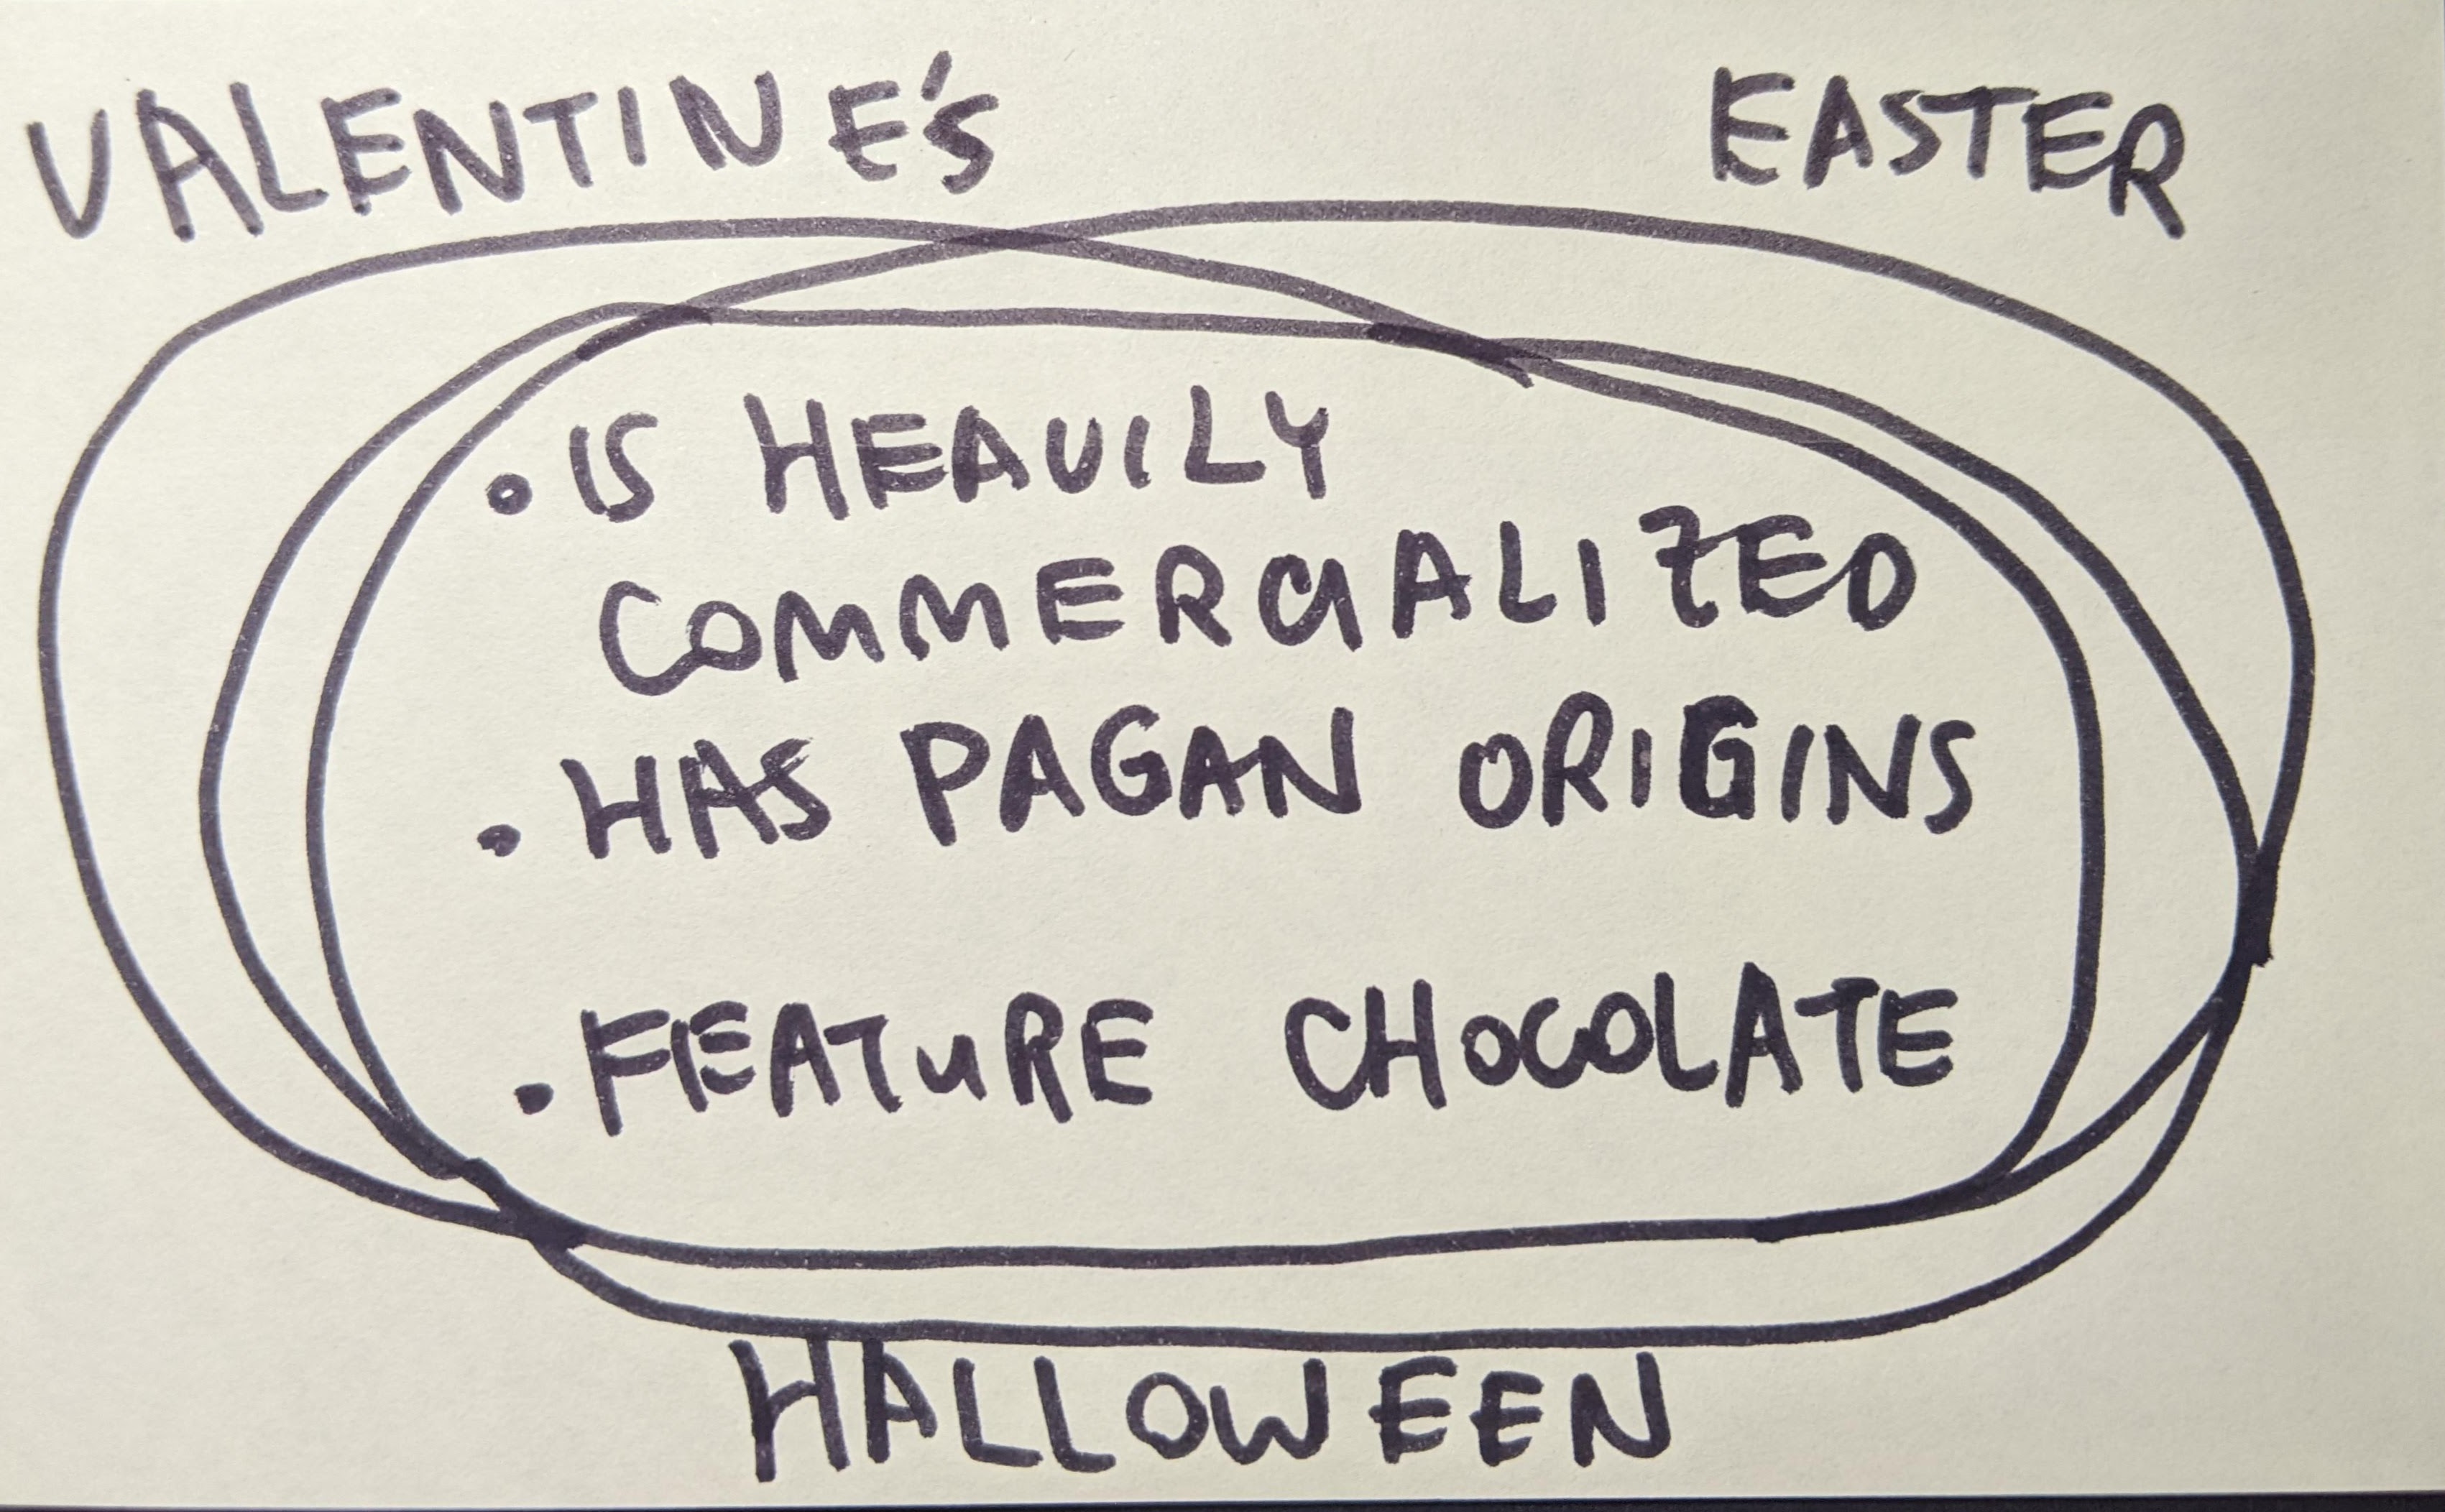 VALENTINE'S
EASTER
• IS HEAVILY
COMMERCIALIZED
• HAS PAGAN ORIGINS
• FEATURE CHOCOLATE
HALLOWEEN